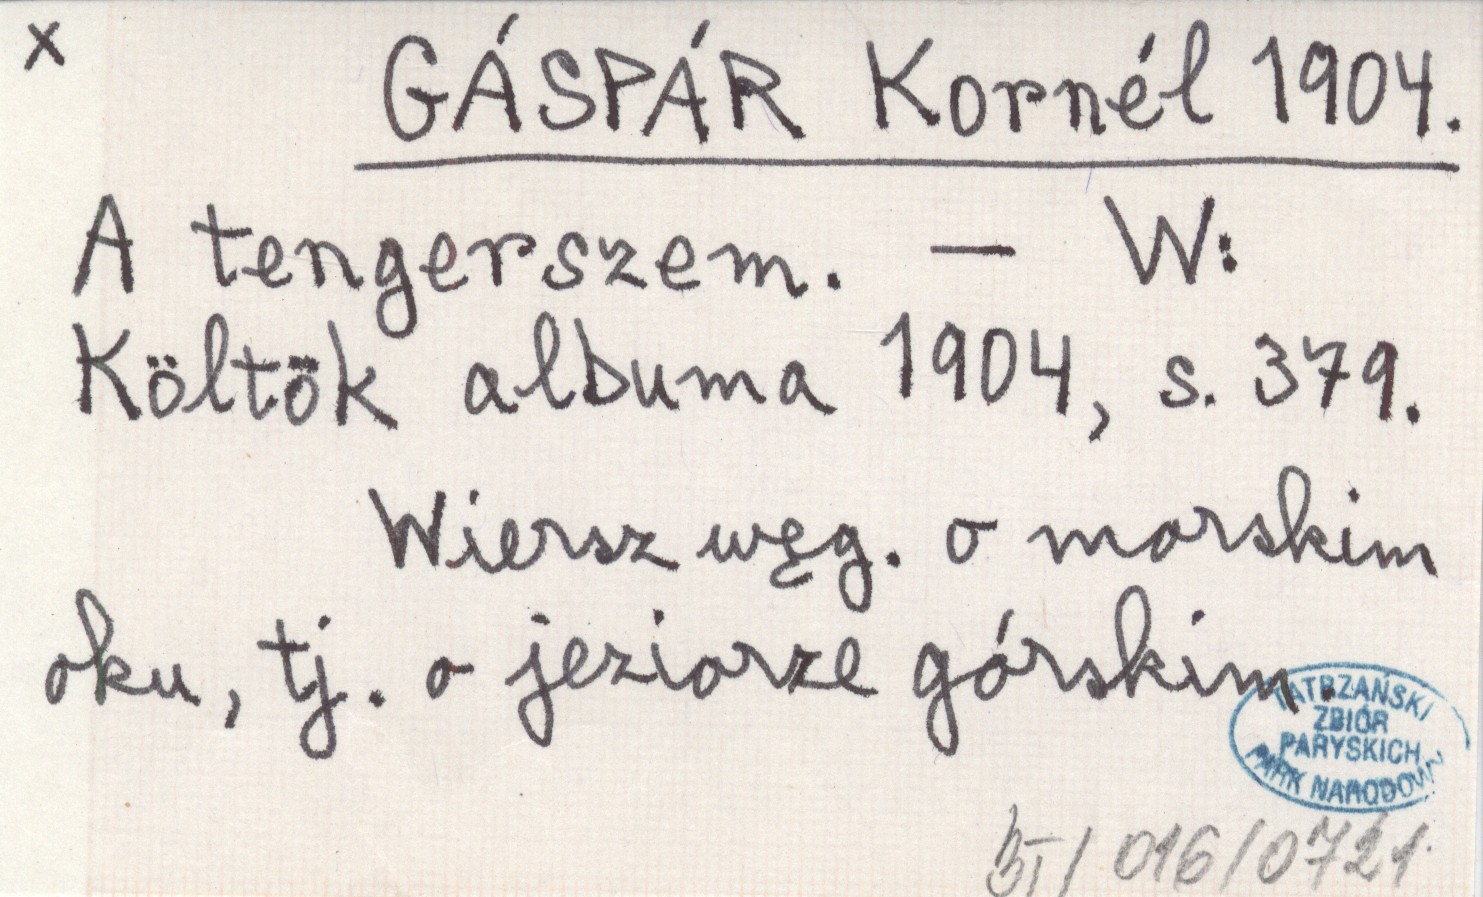 x
GÁSPÁR Kornél 1904.
A tengerszem. — W:
Költök albuma 1904, s. 379.
Wiersz węg. o morskim
oku, tj. o jeziorze górskim.
TATRZAŃSKI
ZBIÓR
PARYSKICH
PARK NARODOWY
/ 016/0721.